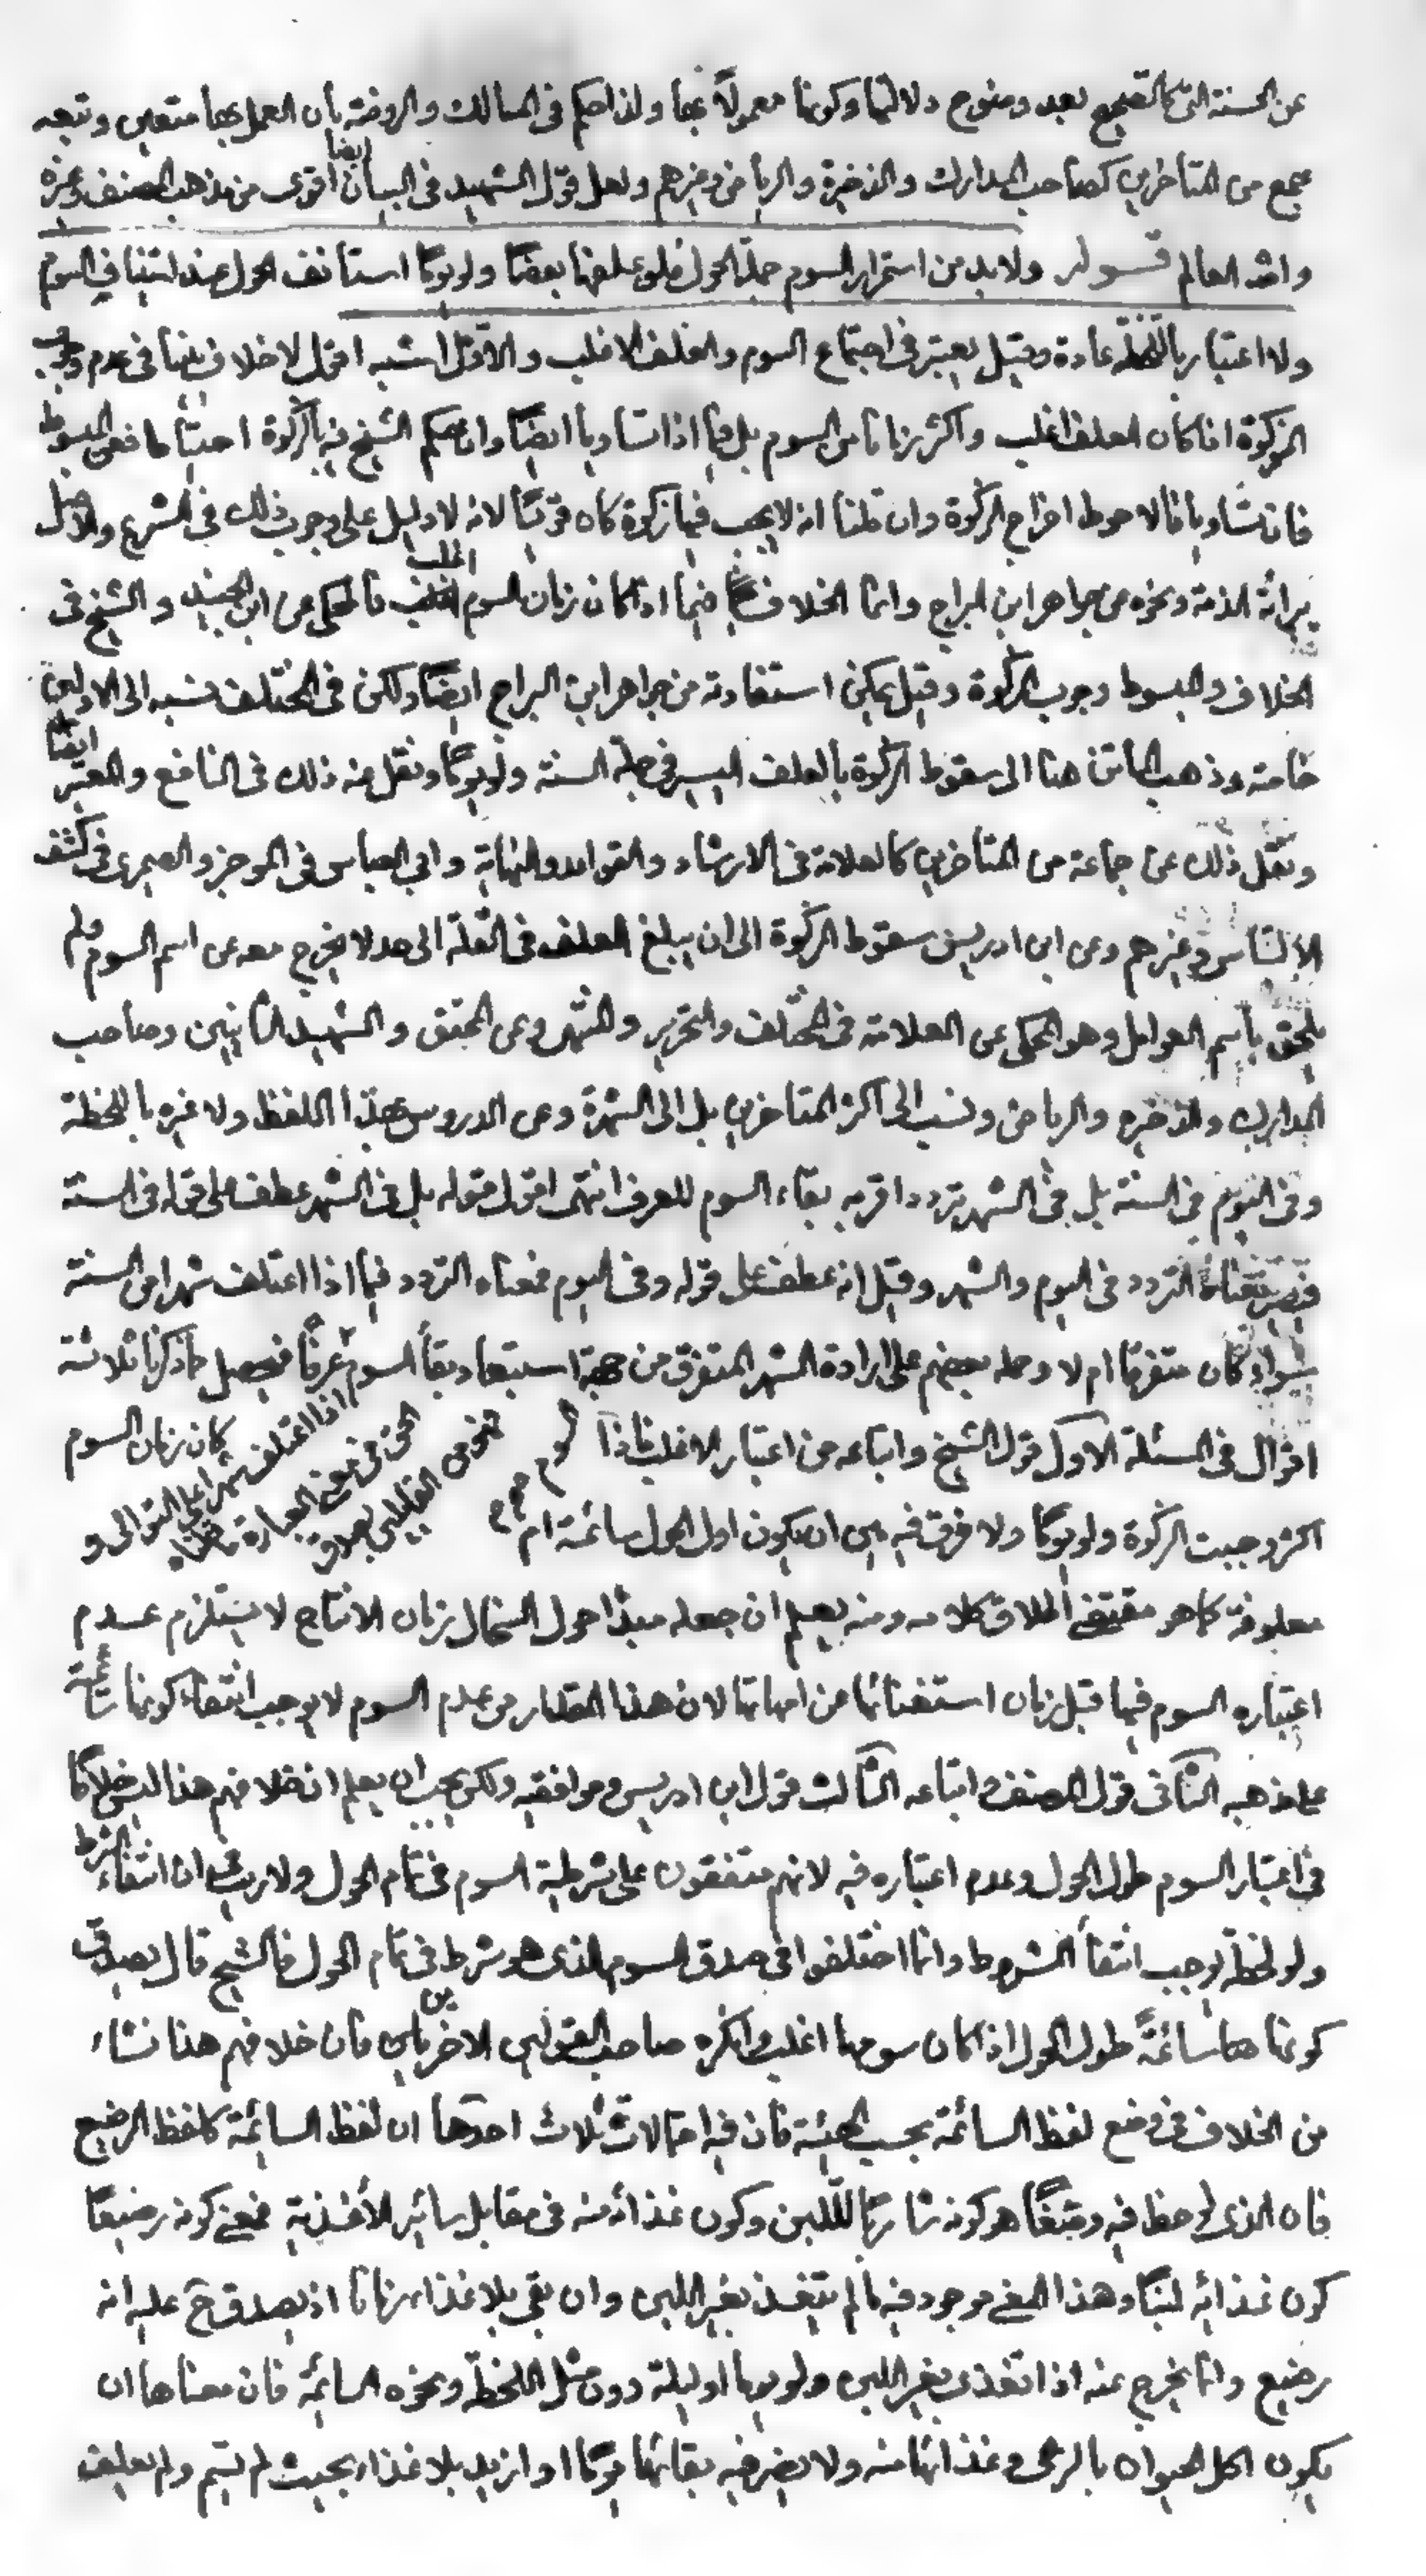 عن الحسنة التى كالصحيح بعد وضوح دلالتها وكونها معمولاً بها ولذا حكم فى المسالك والروضة بأن العمل بها متعين وتبعه
جمع من المتأخرين كصاحب المدارك والذخيرة والرياض وغيرهم ولعل قول الشهيد فى البيان ايضا اقوى من مذهب المصنف وغيره
والله العالم قوله ولا بد من استمرار السوم جملة الحول فلو علفها بعضاً ولو يوماً استأنف الحول عند استينافى السوم
ولا اعتبار باللحظة عادة وقيل يعتبر فى اجتماع السوم والعلف الاغلب والاول اشبه اقول لا خلاف بيننا فى عدم وجوب
الزكوة اذا كان العلف اغلب واكثر زمانا من السوم بل فيما اذا تساويا ايضاً وان حكم الشيخ فيه بالزكوة احتياطا ففى المبسوط
فان تساويا فالاحوط اخراج الزكوة وان قلنا انه لا يجب فيها زكوة كان قوياً لانه لا دليل على وجوب ذلك فى الشرع والاصل
برائة الذمة ونحوه عن جواهر ابن البراج وانما الخلاف فيما اذا كان زمان السوم اغلب فالمحكى عن ابن الجنيد والشيخ فى
الخلاف والمبسوط وجوب الزكوة وقيل يمكن استفادته من جواهر ابن البراج ايضاً ولكن فى المختلف نسبه الى الاولين
خاصة وذهب الماتن هنا الى سقوط الزكوة بالعلف اليسير فى جملة السنة ولو يوماً ونقل عنه ذلك فى النافع والمعتبر ايضاً
ونقل ذلك عن جماعة من المتأخرين كالعلامة فى الارشاد والقواعد والنهاية وابى العباس فى الموجز والصيمرى فى كشف
الالتباس وغيرهم وعن ابن ادريس سقوط الزكوة الى ان يبلغ العلف فى القلة الى حد لا يخرج معه عن اسم السوم ولم
يلحق باسم العوامل وهو المحكى عن العلامة فى المختلف والتحرير والمنتهى وعن المحقق والشهيد الثانيين وصاحب
المدارك والذخيرة والرياض ونسب الى اكثر المتاخرين بل الى الشهرة وعن الدروس بهذا اللفظ ولا عبرة باللحظة
وفى اليوم فى السنة بل فى الشهر تردد اقربه بقاء السوم للعرف انتهى اقول قوله بل فى الشهر عطف على قوله فى السنة
فيصير معناه التردد فى اليوم والشهر وقيل انه عطف على قوله وفى اليوم فمعناه التردد فيما اذا اعتلف شهرا من السنة
سواء كان متفرقا ام لا وحمله بعضهم على ارادة الشهر المتفرق من جهة استبعاد بقاء السوم عرفاً اذا اعتلف شهرا على التوالى و فحصل مما ذكرنا ثلاثة
اقوال فى المسئلة الاول قول الشيخ واتباعه من اعتبار الاغلب فاذا كان زمان السوم
اكثر وجبت الزكوة ولو يوماً ولا فرق فيه بين ان يكون اول الحول سائمة ام
معلوفة كما هو مقتضى اطلاق كلامه ومنه يعلم ان جعله مبدأ حول السخال زمان الانتاج لا يستلزم عدم
اعتباره السوم فيما قبل زمان استغنائها عن امهاتها لان هذا المقدار من عدم السوم لا يوجب انتفاء كونها سائمة
على مذهبه الثانى قول المصنف واتباعه الثالث قول ابن ادريس وموافقيه ولكن يجب ان يعلم ان خلافهم هذا ليس خلافا
فى اعتبار السوم طول الحول وعدم اعتباره فيه لانهم متفقون على شرطية السوم فى تمام الحول ولا ريب ان انتفاء الشرط
ولو لحظة يوجب انتفاء المشروط وانما اختلفوا فى صدق السوم الذى هو شرط فى تمام الحول فالشيخ قال بصدق
كونها سائمةً طول الحول اذا كان سومها اغلب وانكره صاحب القولين الاخرين فان خلافهم هنا نشاء
من الخلاف فى وضع لفظ السائمة بحسب الهيئة فان فيه احتمالات ثلاث احدها ان لفظ السائمة كلفظ الرضيع
فان الذى لوحظ فيه وضعاً هو كونه شارباً للّبن وكون غذائه منه فى مقابل سائر الأغذية فمعنى كونه رضيعاً
كون غذائه لبناً وهذا المعنى موجود فيه ما لم يتغذ بغير اللبن وان بقى بلا غذاء زمانا اذ يصدق ح عليه انه
رضيع وانما يخرج عنه اذا تغذى بغير اللبن ولو يوما او ليلة دون مثل اللحظة ونحوه السائمة فان معناها ان
يكون اكل الحيوان بالرعى وغذائها منه ولا يضر فيه بقائها يوماً او ازيد بلا غذاء بحيث لم تسم ولم تعلف